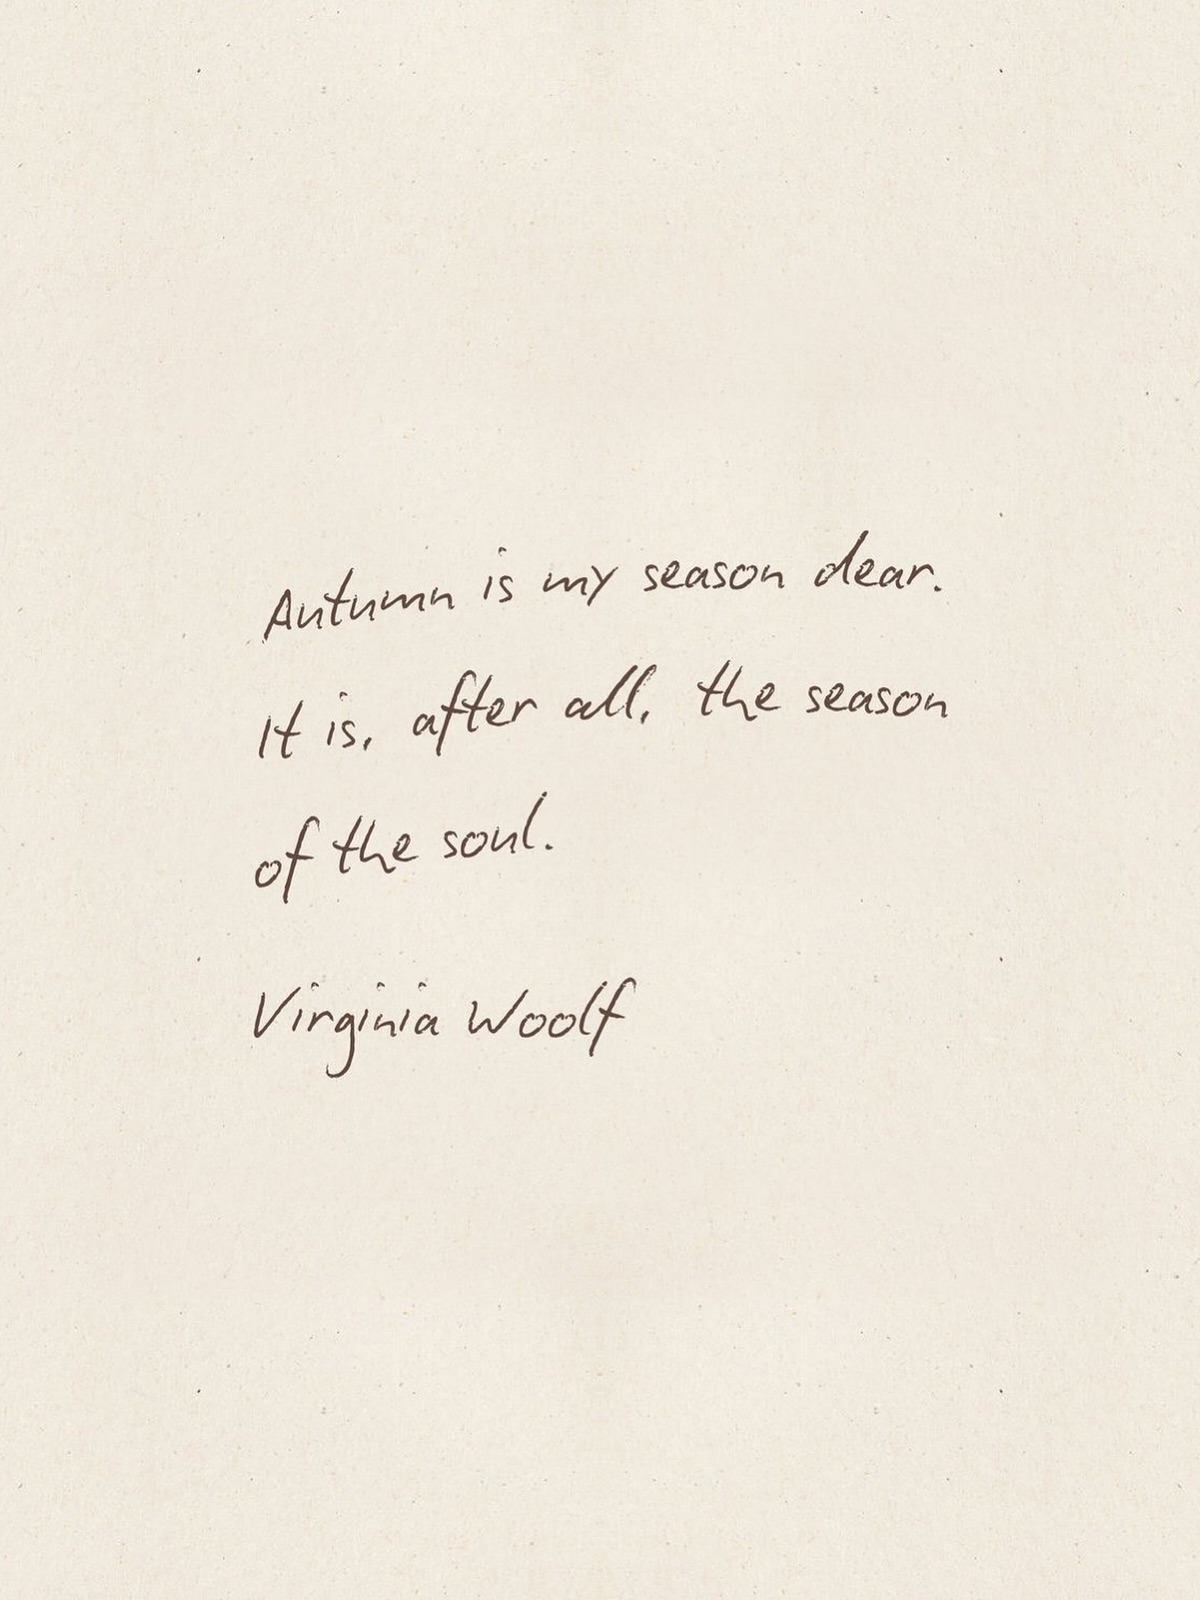 Autumn is my season dear.
It is, after all, the season
of the soul.
Virginia Woolf